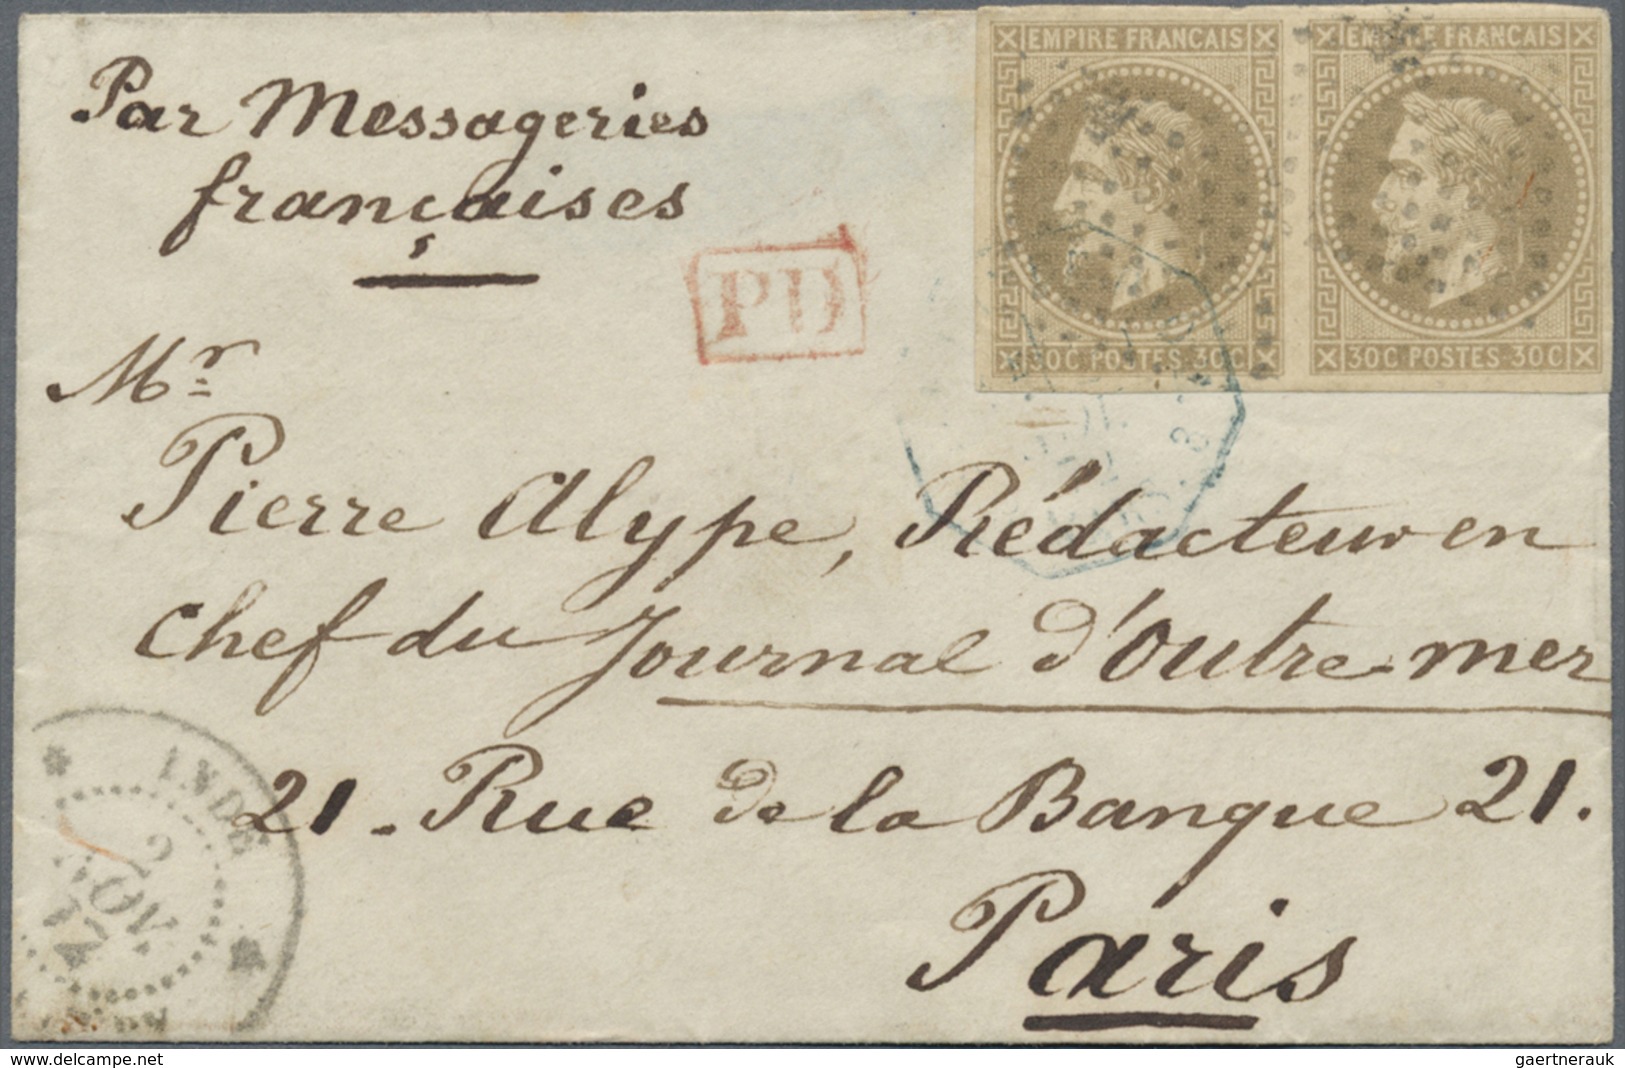 Par Messageries
françaises
EMPIRE FRANCAIS
30C POSTES 30C
EMPIRE FRANCAIS
30C POSTES 30C
PD
Mr
Pierre Alype, Rédacteur en
chef du Journal d'outre-mer
21. Rue de la Banque 21.
Paris
INDE
NOV.
delcampe.net
gaertnerauk